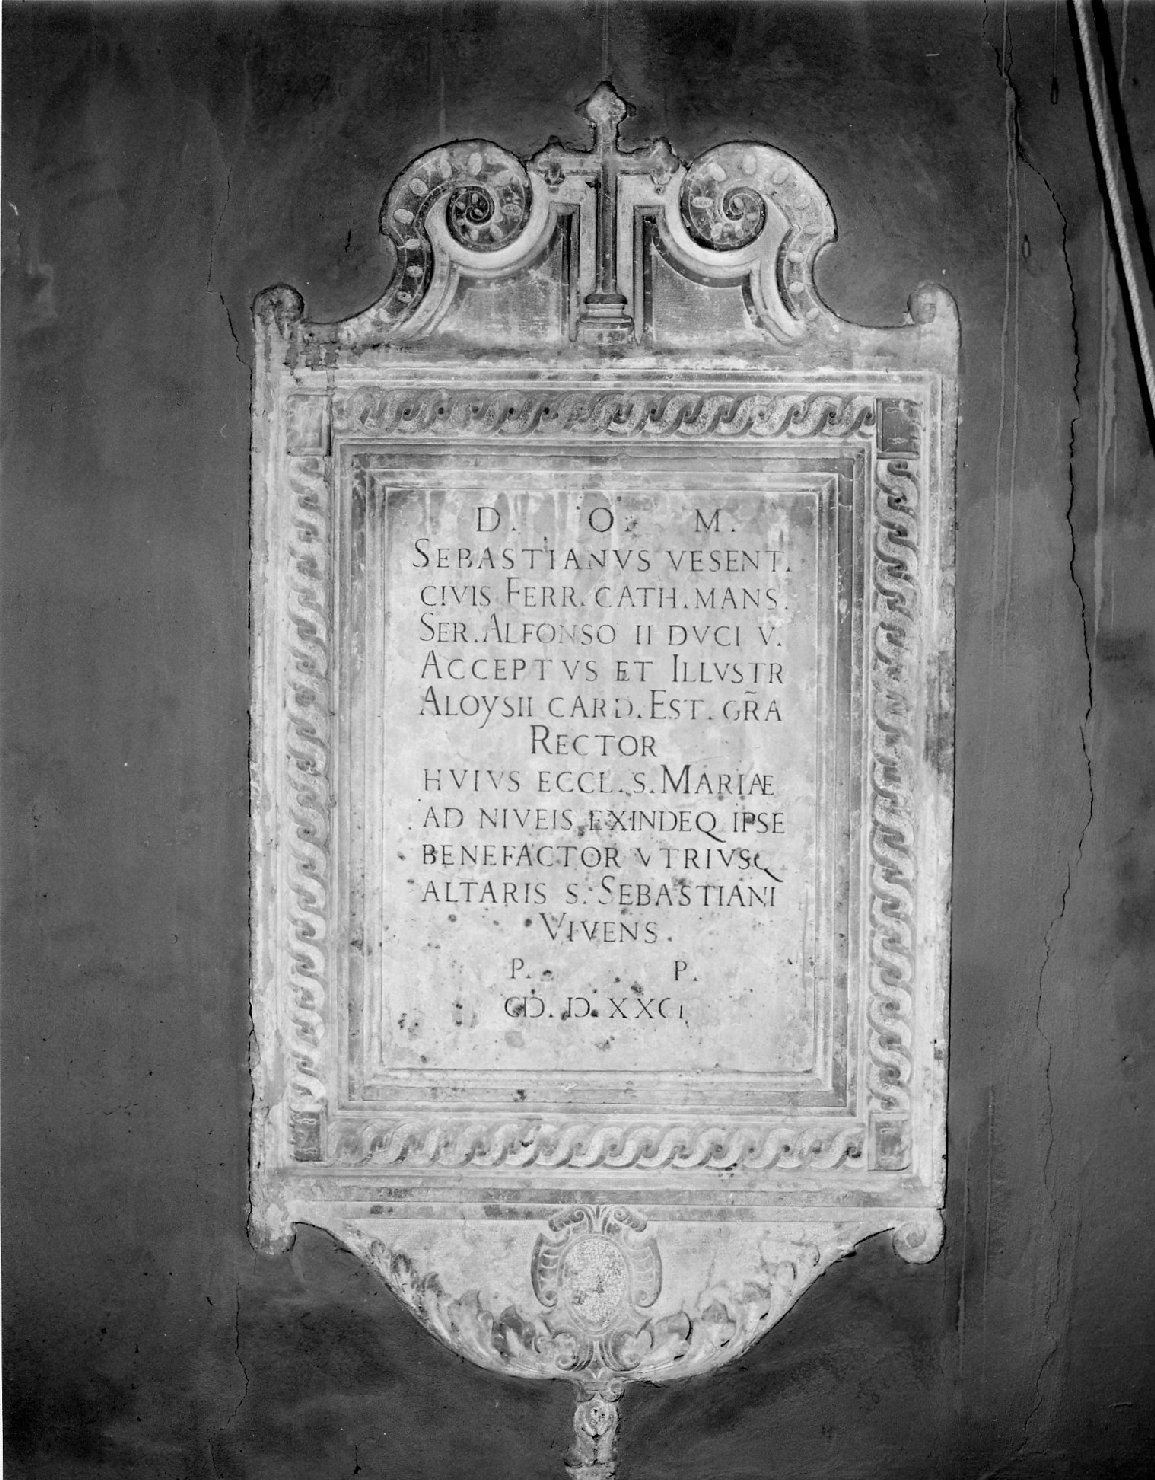 D. O. M.
SEBASTIANVS VESENT.
CIVIS FERR. CATH. MANS.
SER. ALFONSO II DVCI V.
ACCEPTVS ET ILLVSTR
ALOYSII CARD. EST. GR̃A
RECTOR
HVIVS ECCL. S. MARIÆ
AD NIVEIS EXINDEQ IPSE
BENEFACTOR VTRIVSQ
ALTARIS S. SEBASTIANI
VIVENS.
P. P.
CIƆ. IƆ. XXCI